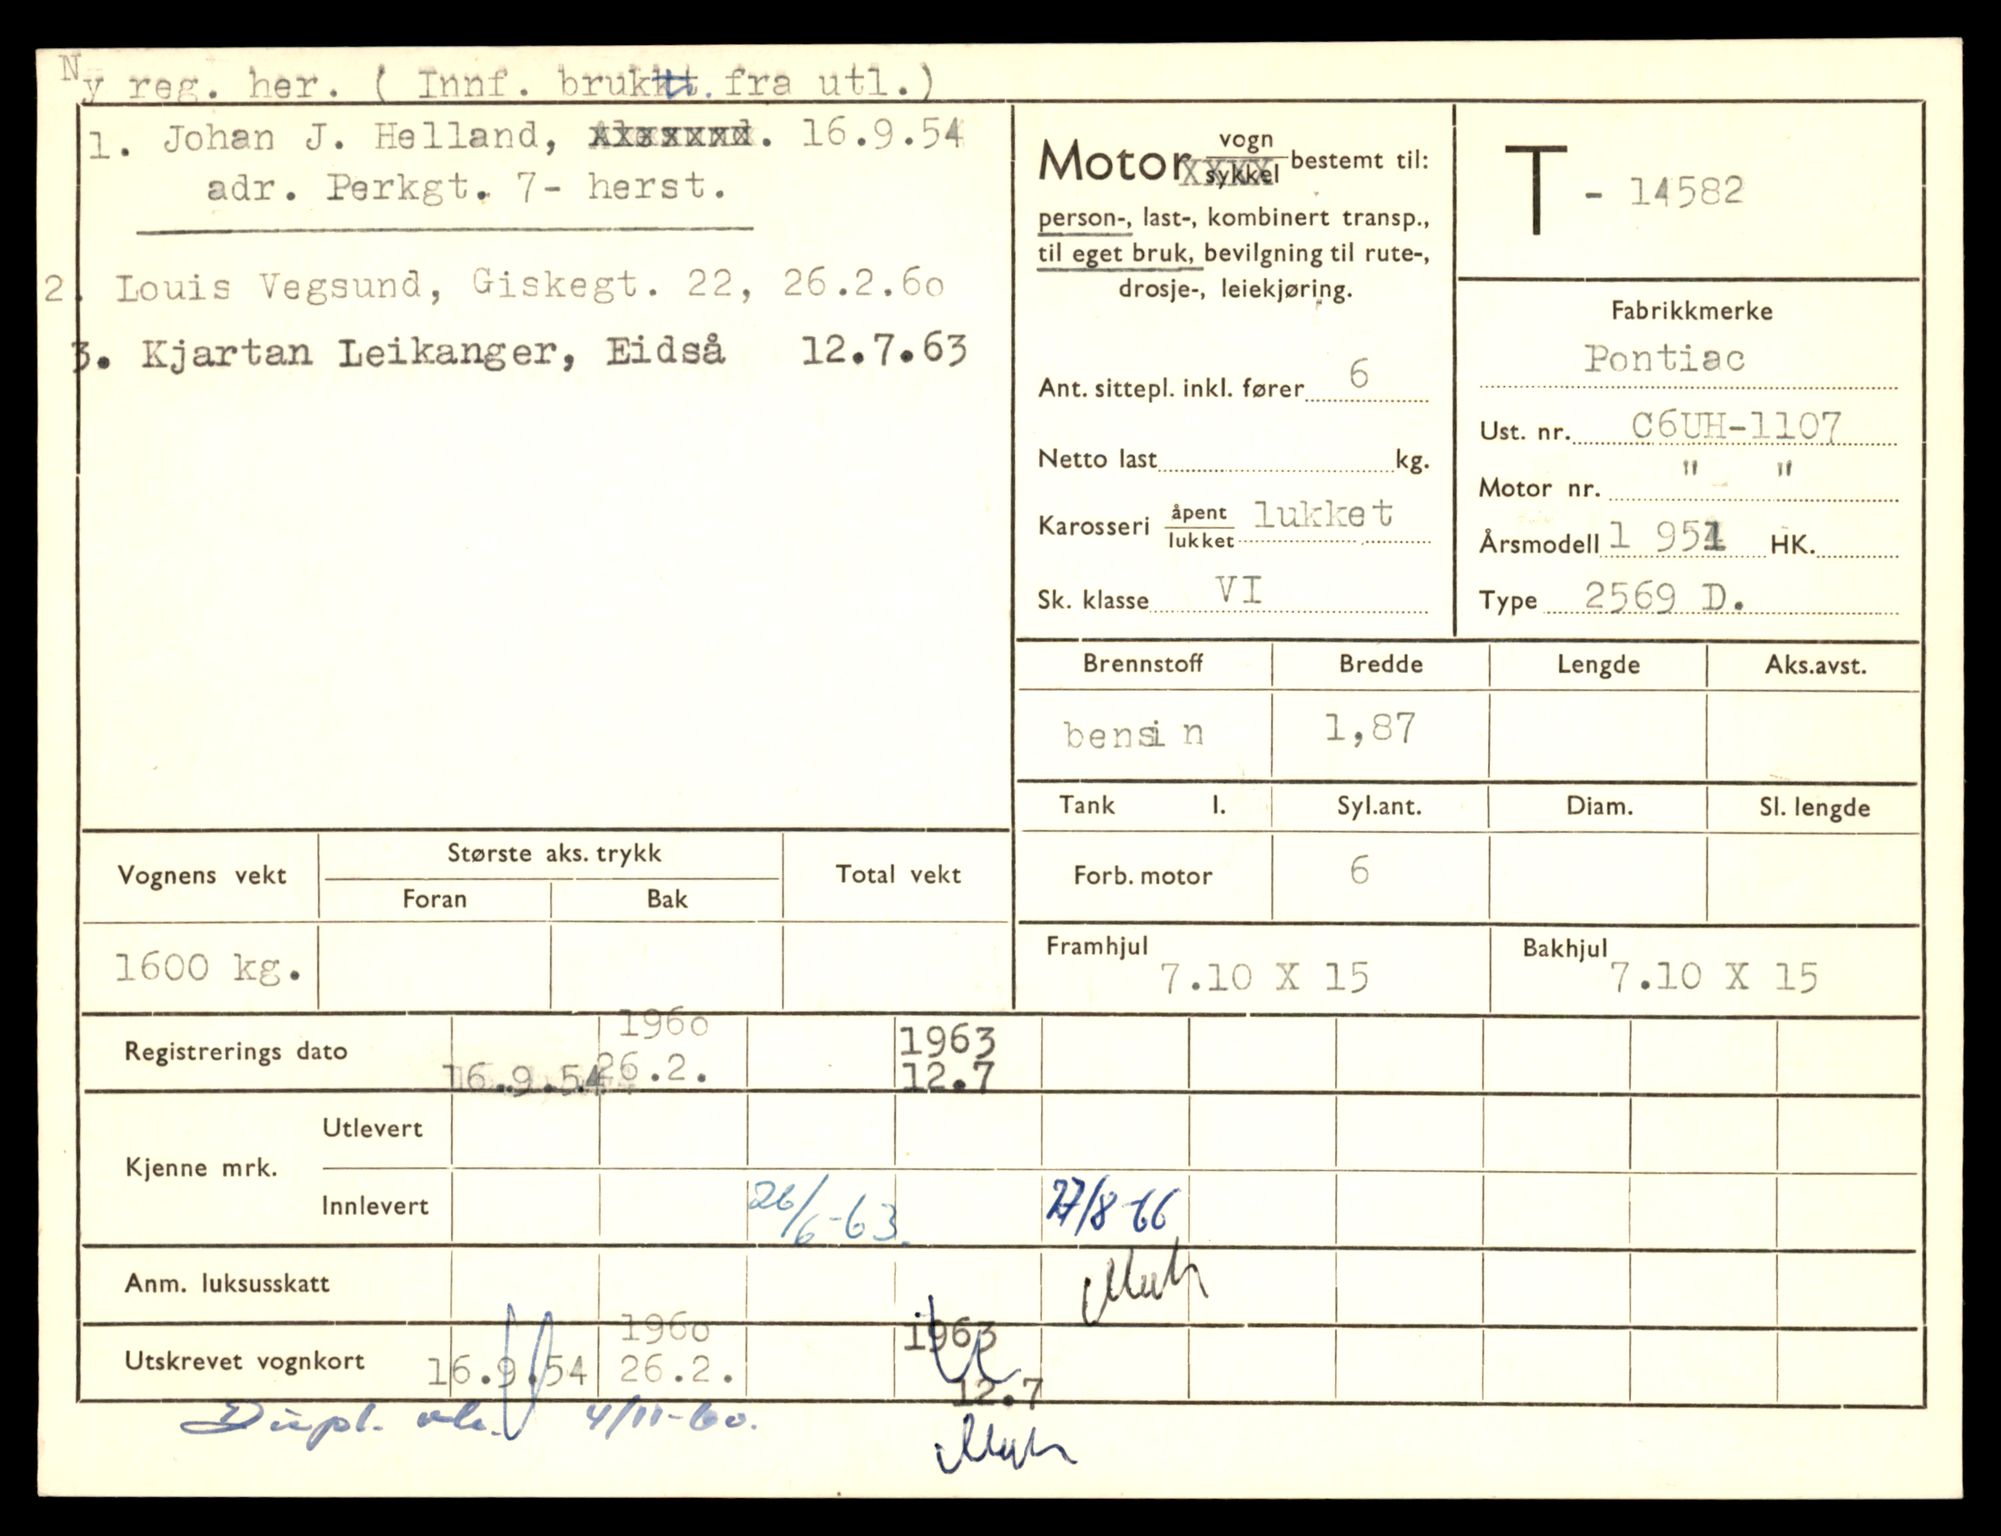 Ny reg. her. ( Innf. brukt. fra utl.)
1. Johan J. Helland, 16.9.54
adr. Perkgt. 7- herst.
2. Louis Vegsund, Giskegt. 22, 26.2.60
3. Kjartan Leikanger, Eidså 12.7.63
Motor vogn sykkel bestemt til:
person-, last-, kombinert transp.,
til eget bruk, bevilgning til rute-,
drosje-, leiekjøring.
Ant. sittepl. inkl. fører 6
Netto last kg.
Karosseri åpent lukket lukket
Sk. klasse VI
T - 14582
Fabrikkmerke
Pontiac
Ust. nr. C6UH-1107
Motor nr. " "
Årsmodell 1 951 HK.
Type 2569 D.
Brennstoff Bredde Lengde Aks.avst.
bensin 1,87
Tank l. Syl.ant. Diam. Sl. lengde
Forb. motor 6
Framhjul 7.10 X 15 Bakhjul 7.10 X 15
Vognens vekt Største aks. trykk Total vekt
Foran Bak
1600 kg.
1960 1963
Registrerings dato 16.9.54 26.2. 12.7
Kjenne mrk. Utlevert
Innlevert 26/6-63. 27/8-66
Anm. luksusskatt
1960 1963
Utskrevet vognkort 16.9.54 26.2. 12.7
Dupl. vk. 4/11-60.